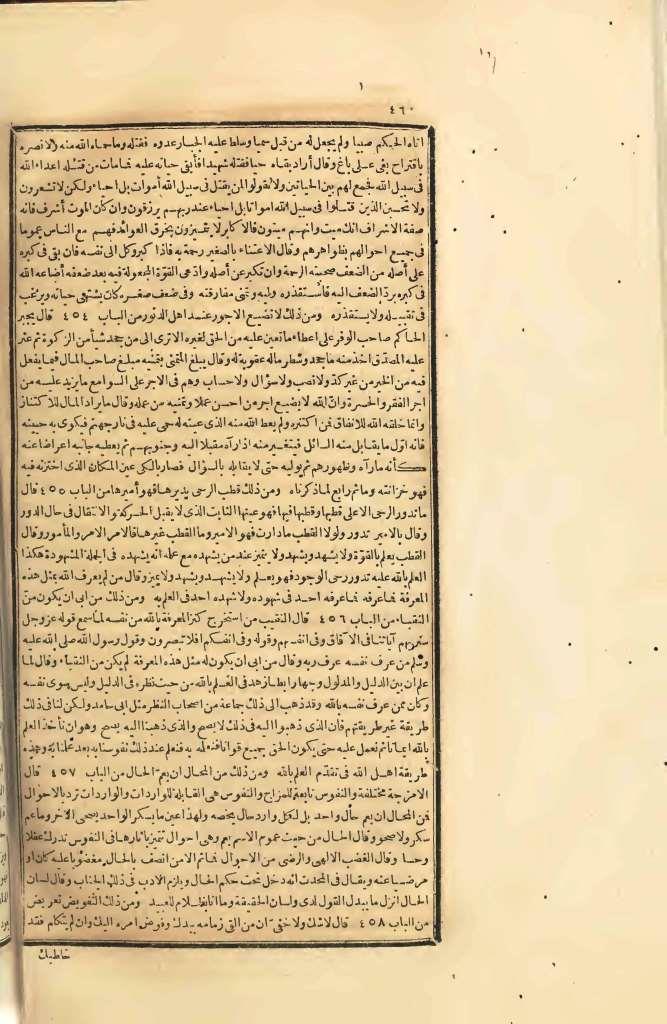 ٤٦٠
اتاه الحكم صبيا ولم يجعل له من قبل سميا وسلط عليه الجبار عدوه فقتله وما حماه الله منه ولا نصره
باقتراح بغي على باغ وقال أراد بقاءه حيا فقتله شهيدا فأبقى حياته عليه فمات من قتله اعداء الله
في سبيل الله فجمع لهم بين الحياتين ولا تقولوا لمن يقتل في سبيل الله أموات بل احياء ولكن لا تشعرون
ولا تحسبن الذين قتلوا في سبيل الله امواتا بل احياء عند ربهم يرزقون وان كان الموت أشرف فانه
صفة الاشراف انك ميت وانهم ميتون فالاكابر لا يتميزون بخرق العوائد فهم مع الناس عموما
في جميع احوالهم بظواهرهم وقال الاعتناء بالصغير رحمة به فاذا كبر وكل الى نفسه فان بقي في كبره
على أصله من الضعف صحبته الرحمة وان تكبر عن أصله وادعى القوة المجعولة فيه بعد ضعفه أضاعه الله
في كبره برد الضعف اليه فاستقذره وليه وتمنى مفارقته وفي ضعف صغره كان يشتهى حياته ويرغب
في تقبيله ولا يستقذره ومن ذلك لا تضيع الاجور عند اهل الدثور من الباب ٤٥٤ قال يجبر
الحاكم صاحب الوفر على اعطاء ما تعين عليه من الحق لغيره الا ترى الى من جحد شيأ من الزكوة ثم عثر
عليه المصدق اخذ منه ما جحد وشطر ماله عقوبة له وقال يبلغ المتمنى بتمنيه مبلغ صاحب المال فيما يفعل
فيه من الخير من غير كد ولا نصب ولا سؤال ولا حساب وهم في الاجر على السواء مع ما يزيد عليه من
اجر الفقر والحسرة وان الله لا يضيع اجر من احسن عملا وتمنيه من عمله وقال ما يراد المال للاكتناز
وانما خلقه الله للانفاق فمن اكتنزه ولم يعط الله منه الذي عينه له حمى عليه في نار جهنم فيكوى به جبينه
فانه اول ما يقابل منه السائل فيتغير منه اذا رآه مقبلا اليه وجنوبهم ثم يعطيه جانبه اعراضا عنه
كأنه ما رآه وظهورهم ثم يوليه حتى لا يقابله بالسؤال فصار بالكي عين المكان الذي اختزنه فيه
فهو خزانته وما ثم رابع لما ذكرناه ومن ذلك قطب الرحى يديرها فهو أميرها من الباب ٤٥٥ قال
ما تدور الرحى الا على قطبها وقطبها فيها فهو عينها الثابت الذي لا يقبل الحركة والانتقال في حال الدور
وقال بالامير تدور ولولا القطب ما دارت فهو الامير وما القطب غيرها فالامر الامر والمأمور وقال
القطب يعلم بالقوة ولا يشهد ويشهد ولا يتميز عند من يشهده مع علمه انه يشهده في الجملة المشهودة هكذا
العلم بالله عليه تدور رحى الوجود فهو يعلم ولا يشهد ويشهد ولا يميز وقال من لم يعرف الله بمثل هذه
المعرفة فما عرفه فما عرفه احد في شهوده ولا شهده احد في العلم به ومن ذلك من ابى ان يكون من
النقباء من الباب ٤٥٦ قال النقيب من استخرج كنز المعرفة بالله من نفسه لما سمع قوله عز وجل
سنريهم آياتنا في الآفاق وفي انفسهم وقوله وفي انفسكم افلا تبصرون وقول رسول الله صلى الله عليه
وسلم من عرف نفسه عرف ربه وقال من ابى ان يكون له مثل هذه المعرفة لم يكن من النقباء وقال لما
علم ان بين الدليل والمدلول وجها رابطا زهد في العلم بالله من حيث نظره في الدليل وليس سوى نفسه
وكان ممن عرف نفسه بالله وقد ذهب الى ذلك جماعة من اصحاب النظر مثل ابى حامد ولكن لنا في ذلك
طريقة غير طريقتهم فان الذي ذهبوا اليه في ذلك لا يصح والذي ذهبنا اليه يصح وهو ان نأخذ العلم
بالله ايمانا ثم نعمل عليه حتى يكون الحق جميع قوانا فنعلمه به فنعلم عند ذلك نفوسنا به بعد علمنا به وهذه
طريقة اهل الله في تقدم العلم بالله ومن ذلك من المحال ان يعم الحال من الباب ٤٥٧ قال
الامزجة مختلفة والنفوس تابعة للمزاج والنفوس هى القابلة للواردات والواردات ترد بالاحوال
فمن المحال ان يعم حال واحد بل لكل وارد حال يخصه ولهذا عين ما يسكر الواحد يصحى الآخر وما عم
سكر ولا صحو وقال الحال من حيث عموم الاسم يعم وهى احوال تتميز بآثارها في النفوس تدرك عقلا
وحسا وقال الغضب الالهى والرضى من الاحوال فما ثم الا من اتصف بالحال مغضوبا عليه كان او
مرضيا عنه ويقال في المحدث انه دخل تحت حكم الحال ويلزم الادب في ذلك الجناب وقال لسان
الحال انزل ما يبدل القول لدى ولسان الحقيقة وما انا بظلام للعبيد ومن ذلك التفويض تعريض
من الباب ٤٥٨ قال لا شك ولا خفى ان من القى زمامه بيدك وفوض امره اليك وان لم يتكلم فقد
خاطبك